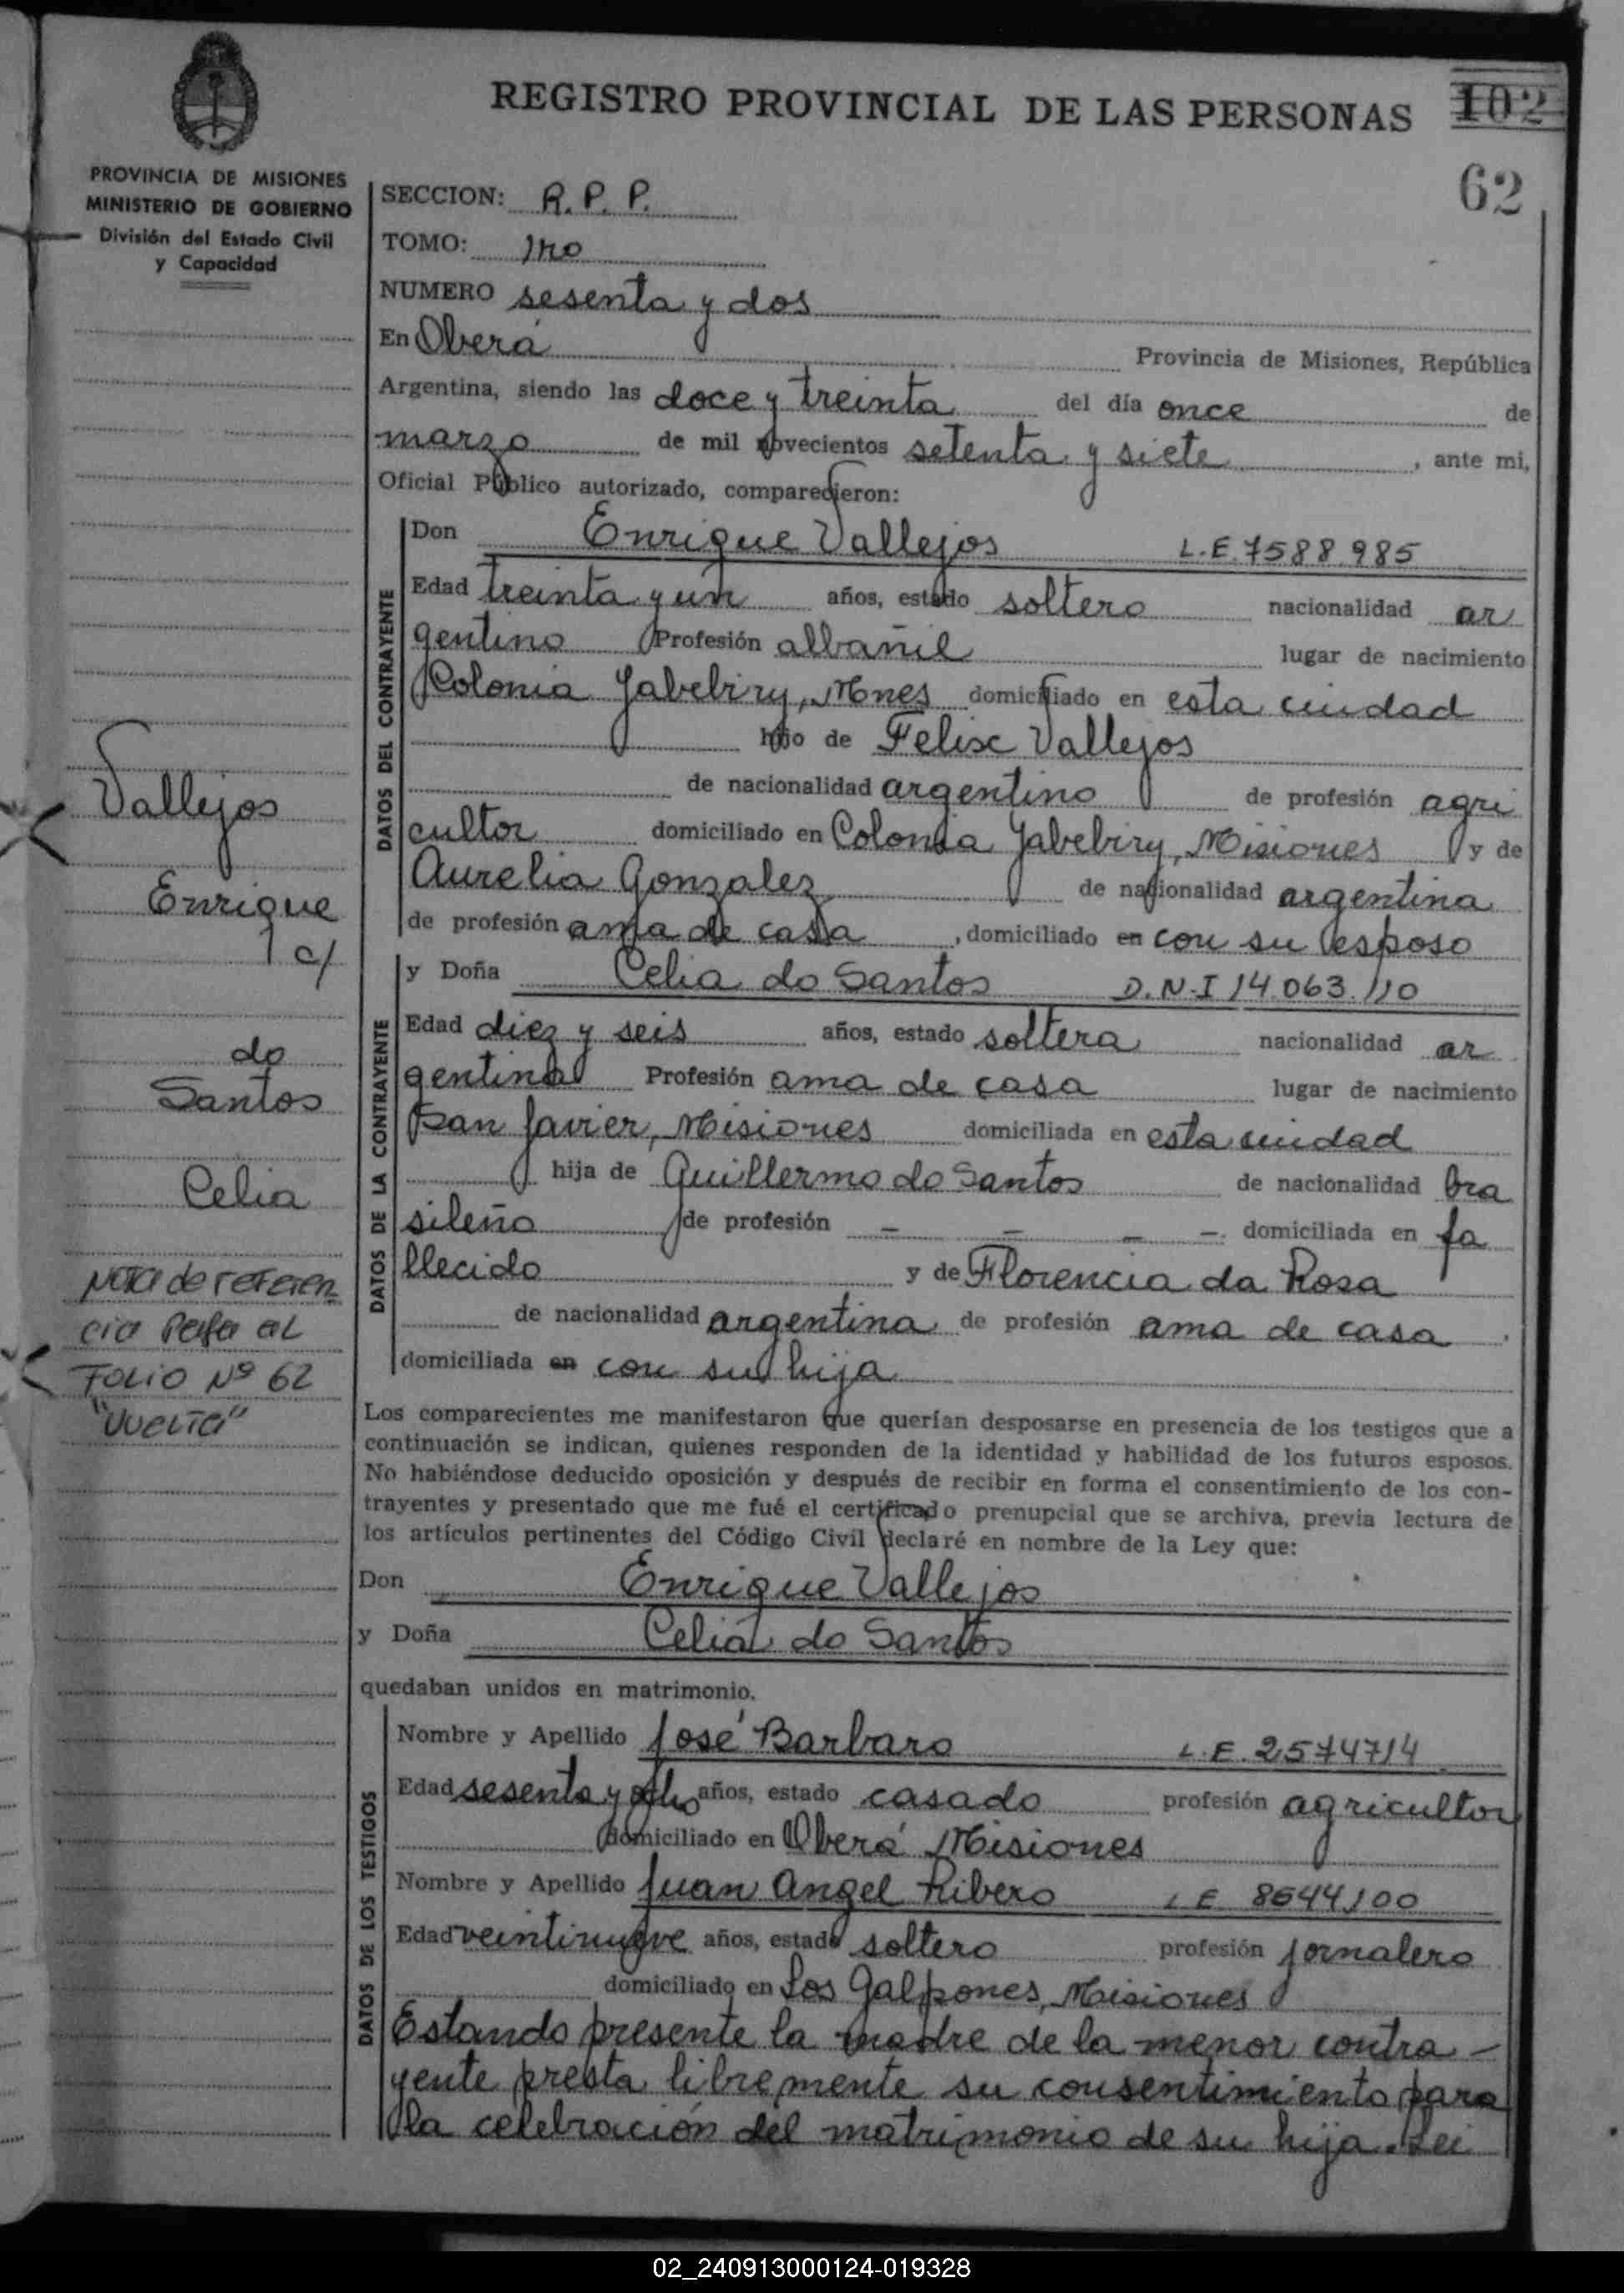 REGISTRO PROVINCIAL DE LAS PERSONAS 102
62
PROVINCIA DE MISIONES
MINISTERIO DE GOBIERNO
División del Estado Civil
y Capacidad
SECCION: R. P. P.
TOMO: 1ro
NUMERO sesenta y dos
En Oberá Provincia de Misiones, República
Argentina, siendo las doce y treinta del día once de
marzo de mil novecientos setenta y siete, ante mi,
Oficial Público autorizado, comparecieron:
DATOS DEL CONTRAYENTE
Don Enrique Vallejos L.E. 7588.985
Edad treinta y un años, estado soltero nacionalidad ar
gentino Profesión albañil lugar de nacimiento
Colonia Yabebiry, Mnes domiciliado en esta ciudad
hijo de Felix Vallejos
de nacionalidad argentino de profesión agri
cultor domiciliado en Colonia Yabebiry, Misiones y de
Aurelia Gonzalez de nacionalidad argentina
de profesión ama de casa, domiciliado en con su esposo
DATOS DE LA CONTRAYENTE
y Doña Celia do Santos D.N.I 14.063.110
Edad diez y seis años, estado soltera nacionalidad ar
gentina Profesión ama de casa lugar de nacimiento
San Javier, Misiones domiciliada en esta ciudad
hija de Guillermo do Santos de nacionalidad bra
sileño de profesión – – – –. domiciliada en fa
llecido y de Florencia da Rosa
de nacionalidad argentina de profesión ama de casa.
domiciliada en con su hija
Vallejos
Enrique
1 c/
do
Santos
Celia
Nota de referen
cia Pasa al
Folio Nº 62
"Vuelta"
Los comparecientes me manifestaron que querían desposarse en presencia de los testigos que a
continuación se indican, quienes responden de la identidad y habilidad de los futuros esposos.
No habiéndose deducido oposición y después de recibir en forma el consentimiento de los con-
trayentes y presentado que me fué el certificado prenupcial que se archiva, previa lectura de
los artículos pertinentes del Código Civil declaré en nombre de la Ley que:
Don Enrique Vallejos
y Doña Celia do Santos
quedaban unidos en matrimonio.
DATOS DE LOS TESTIGOS
Nombre y Apellido José Barbaro L.E. 2574714
Edad sesenta y ocho años, estado casado profesión agricultor
domiciliado en Oberá Misiones
Nombre y Apellido Juan Angel Ribero L E 8644100
Edad veintinueve años, estado soltero profesión jornalero
domiciliado en Los Galpones, Misiones
Estando presente la madre de la menor contra-
yente presta libremente su consentimiento para
la celebración del matrimonio de su hija. Lei
02_240913000124-019328